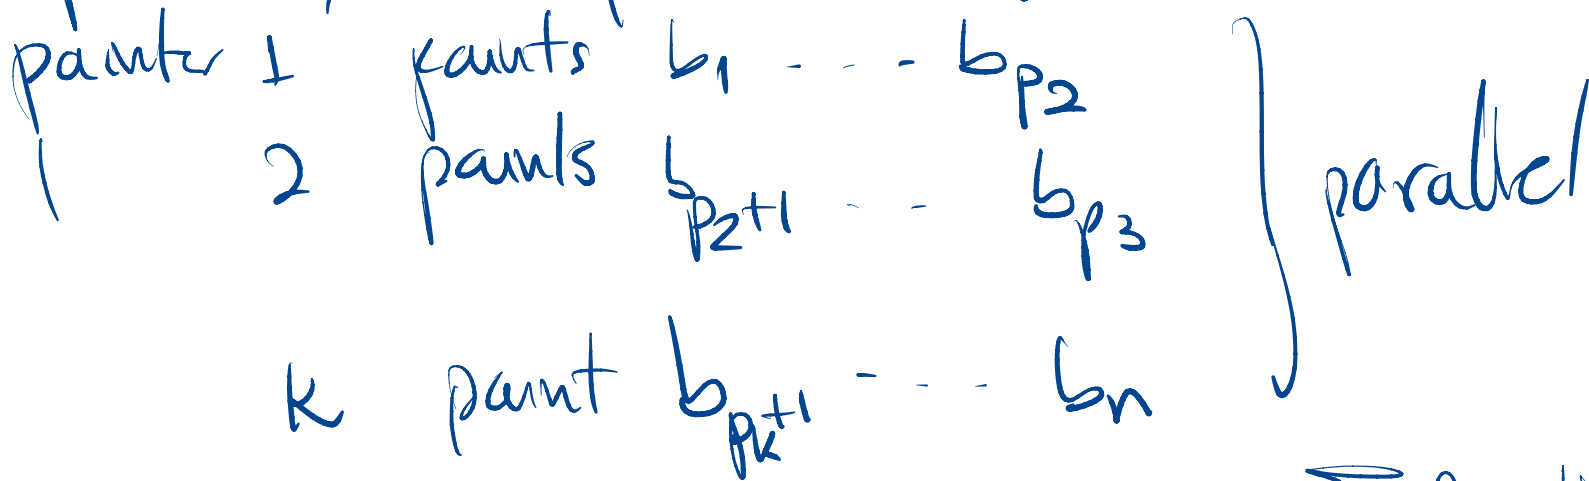 painter 1 paints b₁ - - - b_p₂
2 paints b_p₂+1 - - b_p₃
k paint b_pₖ+1 - - - bₙ
parallel